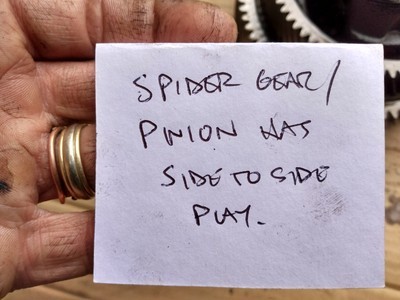 SPIDER GEAR/
PINION HAS
SIDE TO SIDE
PLAY.